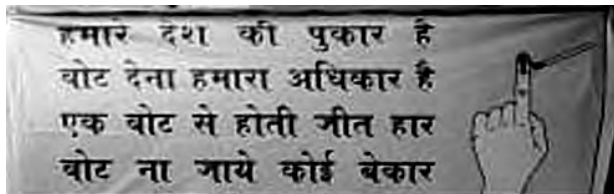 हमारे देश की पुकार है
वोट देना हमारा अधिकार है
एक वोट से होती जीत हार
वोट ना जाये कोई बेकार